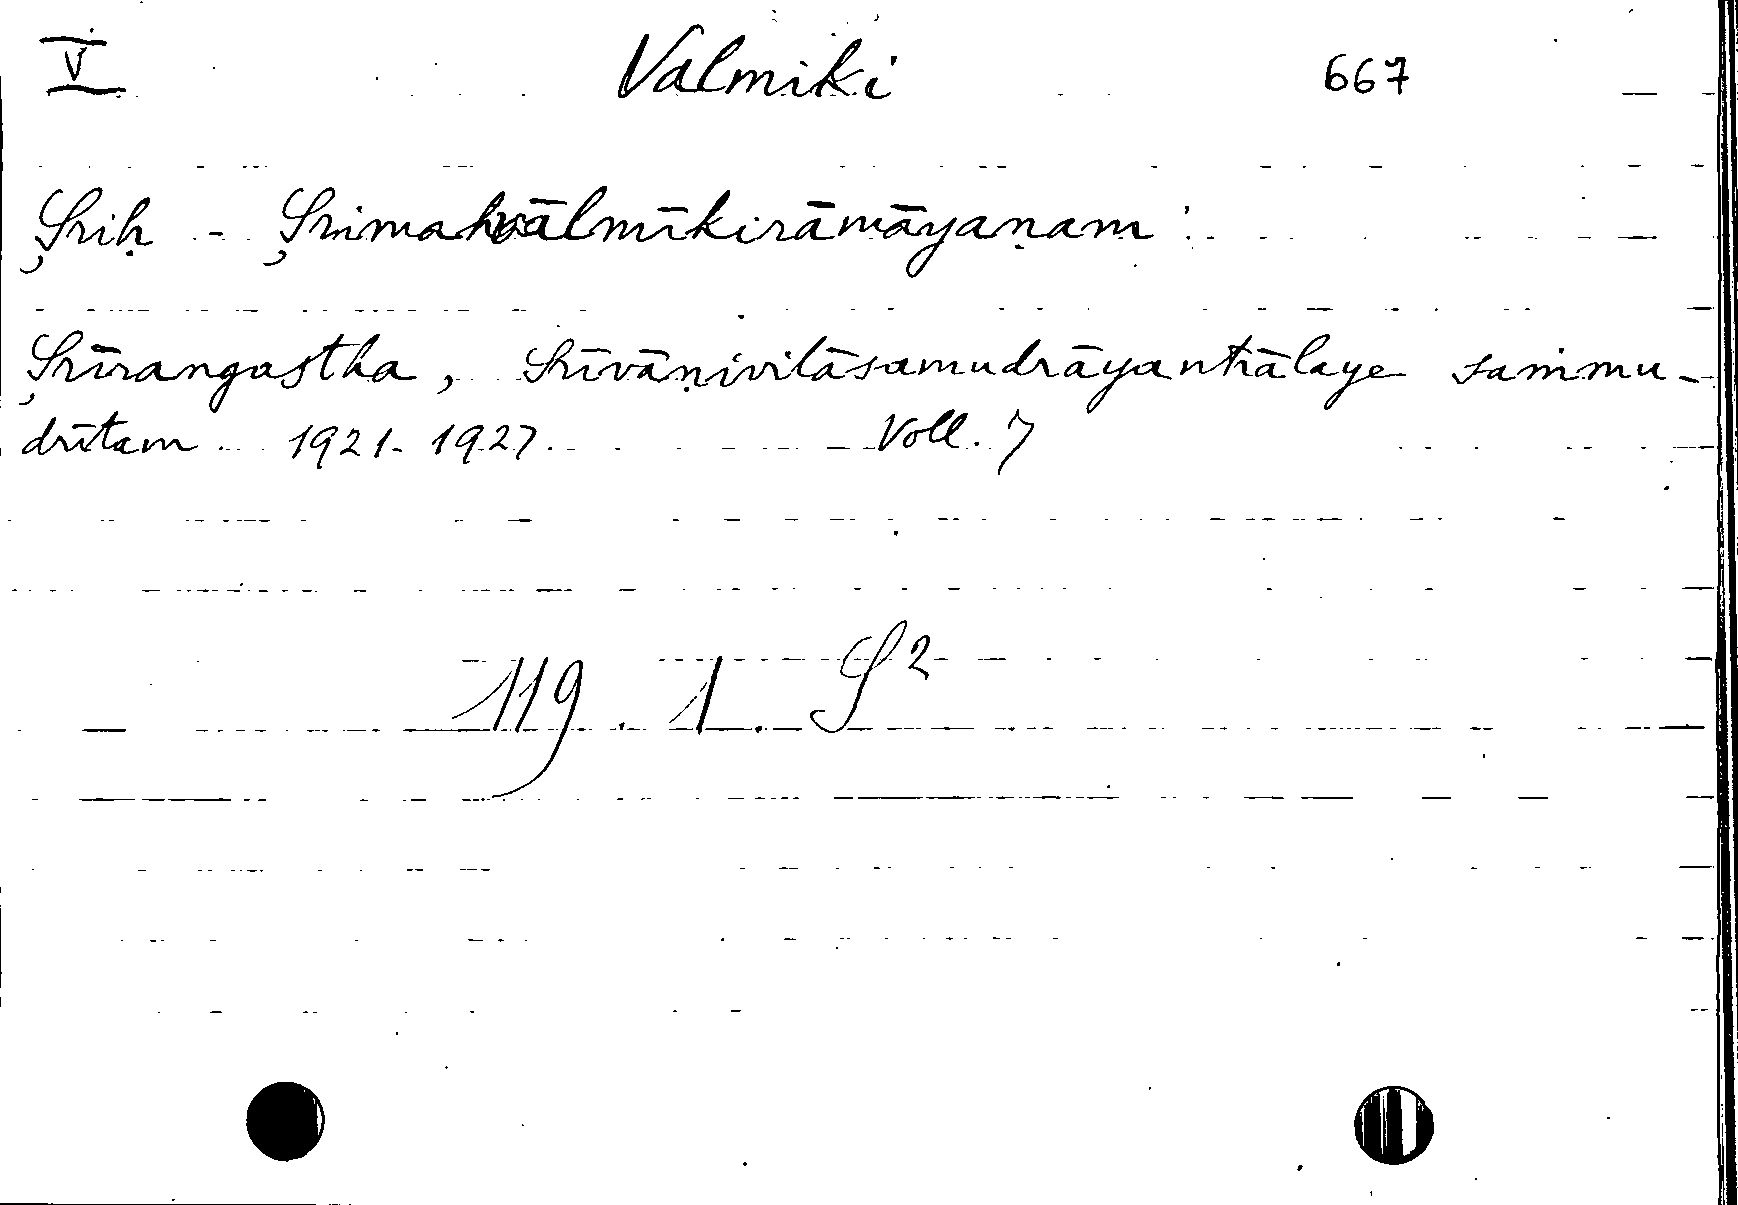 V Valmiki 667
Şriḥ - Şrimahvālmīkirāmāyaṇam
Şrīrangastha, Srīvāṇivilāsamudrāyantrālaye sammu-
dritam 1921-1927. Voll. 7
119. 1. S²